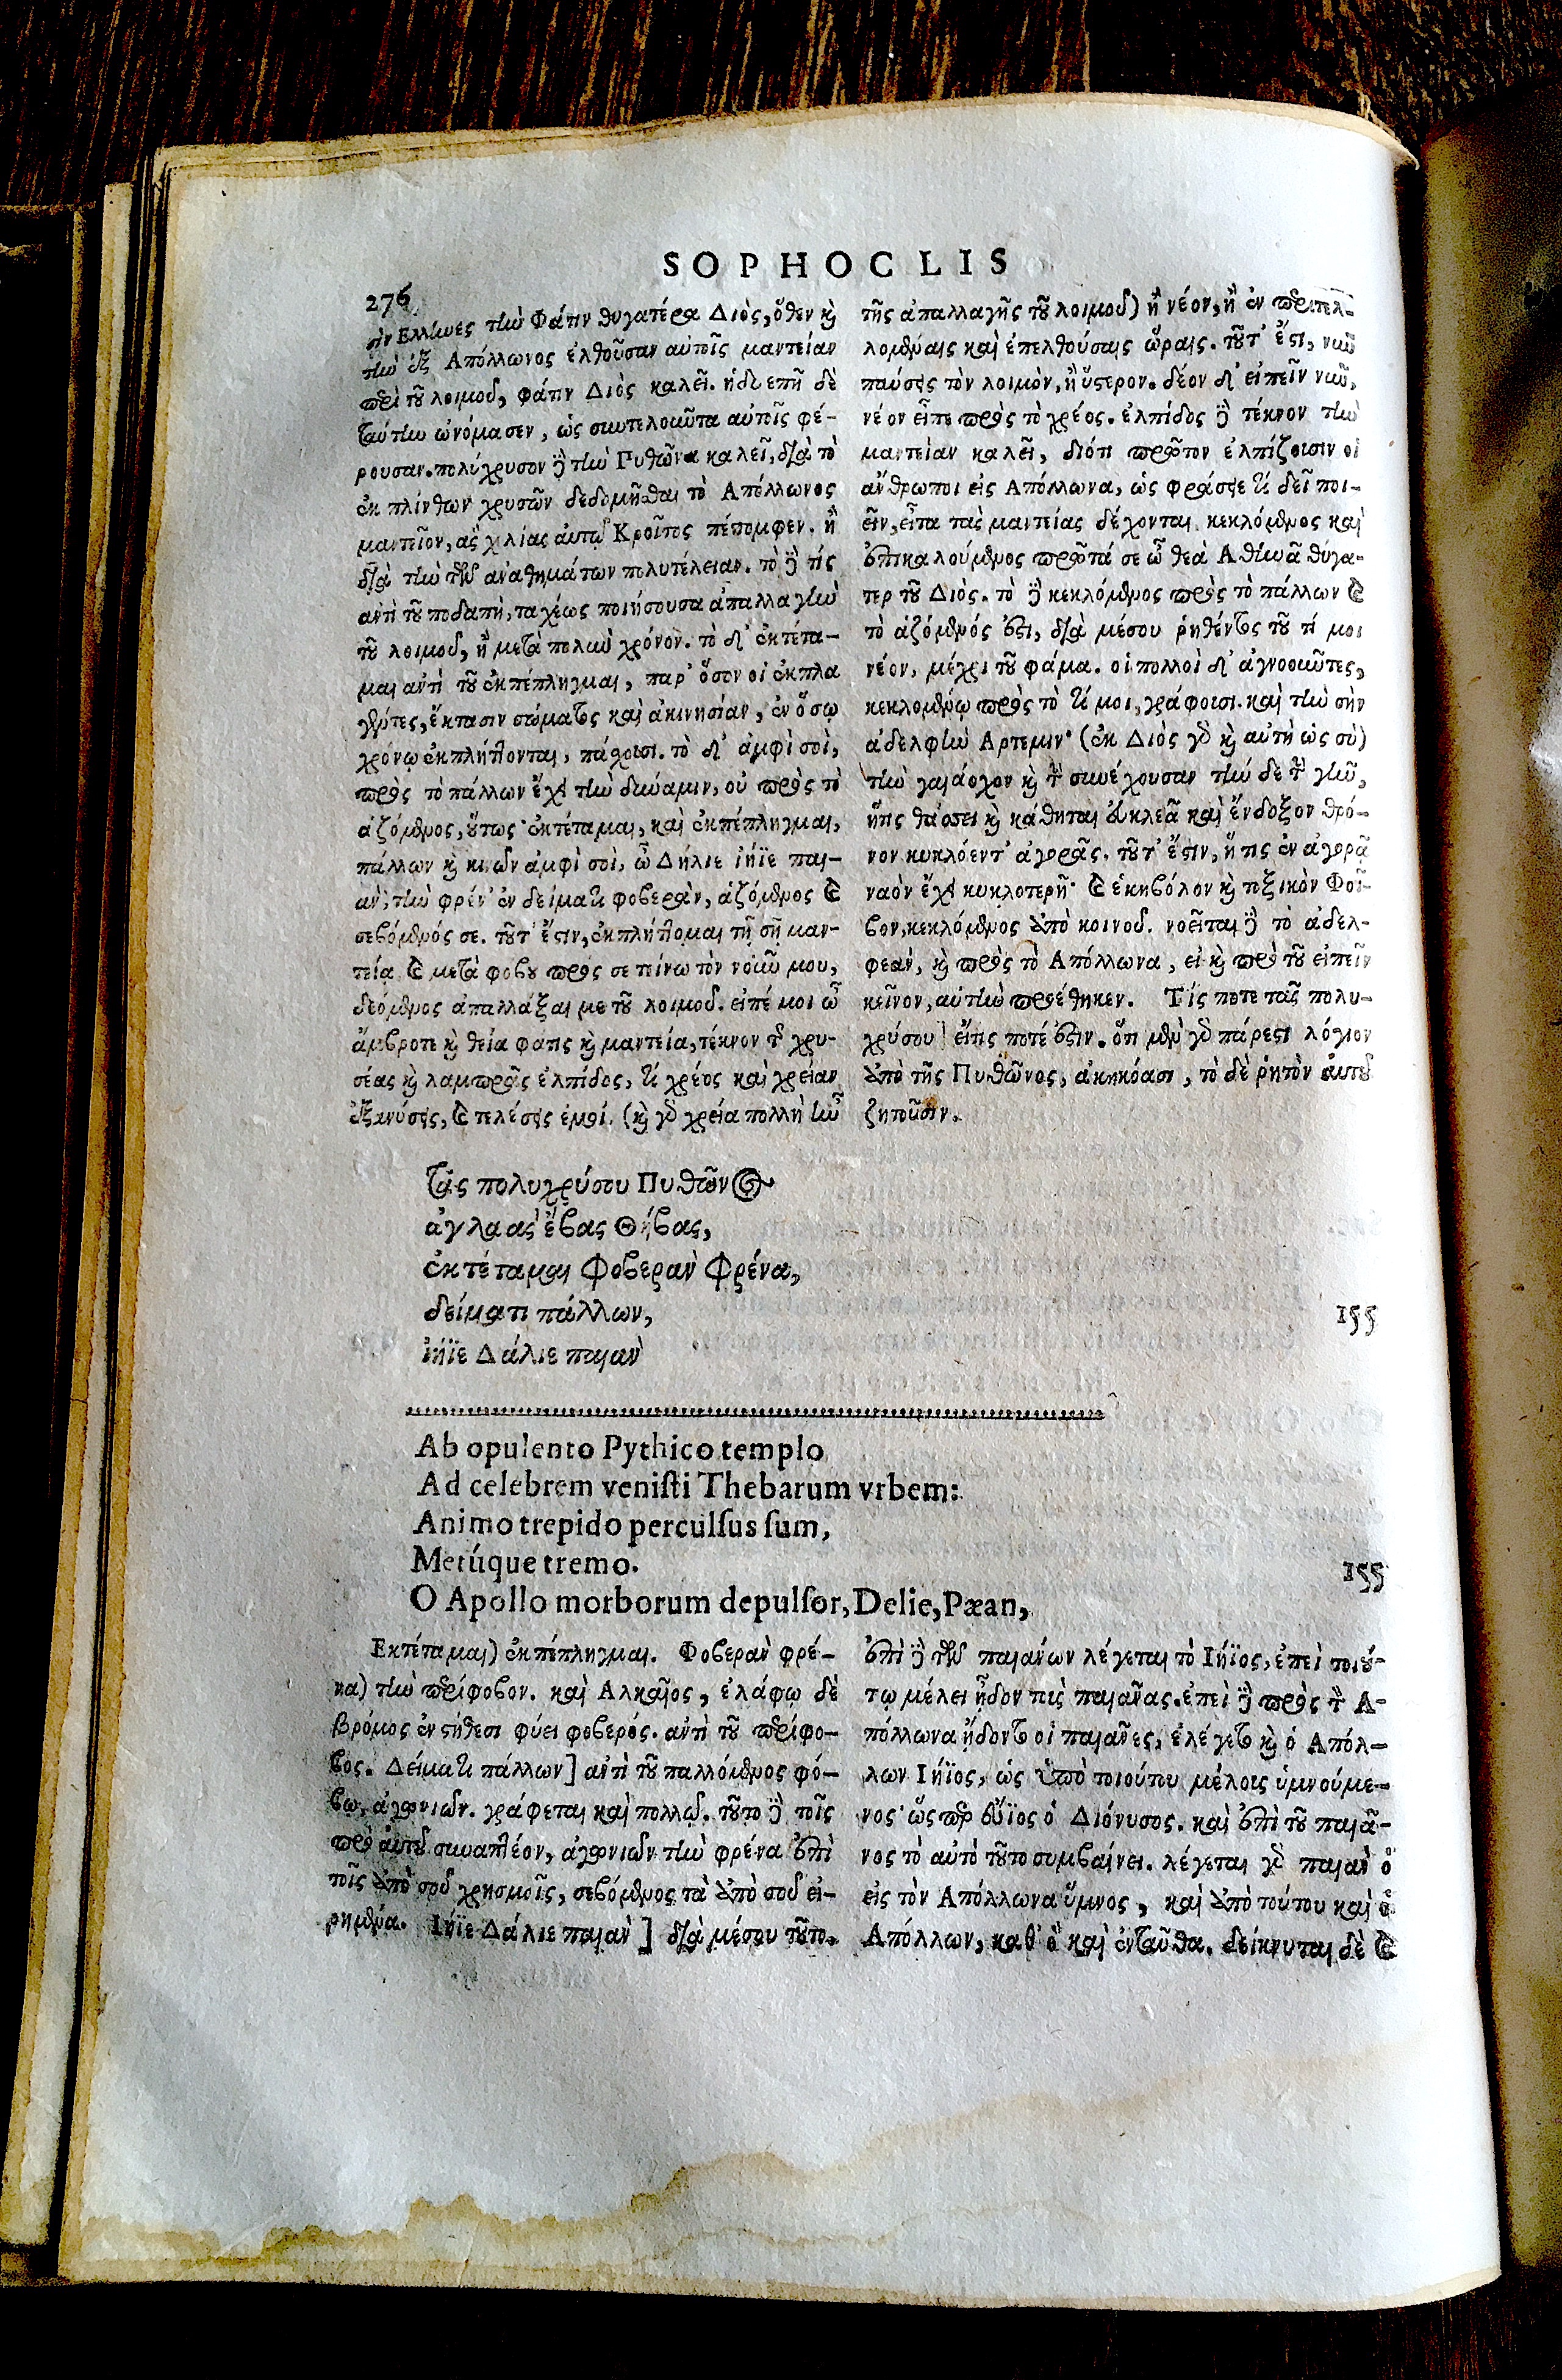 SOPHOCLIS
276
σιν Ελλίωες τίω Φάτιν θυγατέρα Διὸς, ὅθεν καὶ
τίω ἐξ Απόλλωνος ἐλθοῦσαν αὐτοῖς μαντείαν
περὶ τοῦ λοιμοῦ, φάτιν Διὸς καλεῖ. ἡδυεπῆ δὲ
ταύτην ὠνόμασεν, ὡς σωτηρίαν αὐτοῖς φέ-
ρουσαν. πολύχρυσον δὲ τὴν Πυθῶνα καλεῖ, διὰ τὸ
ἐκ πλίνθων χρυσῶν δεδομῆσθαι τὸ Απόλλωνος
μαντεῖον, ἃς χιλίας αὐτῷ Κροῖσος πέπομφεν. ἢ
διὰ τὴν τῶν ἀναθημάτων πολυτέλειαν. τὸ δὲ τίς
αντὶ τοῦ ποδαπὴ, ταχέως ποιήσουσα ἀπαλλαγὴν
τοῦ λοιμοῦ, ἢ μετὰ πολὺν χρόνον. τὸ δ' ἐκτέτα-
μαι αντὶ τοῦ ἐκπέπληγμαι, παρ' ὅσον οἱ ἐκπλα
γέντες, ἔκτασιν σώματος καὶ ἀκινησίαν, ἐν ὅσῳ
χρόνῳ ἐκπλήττονται, πάσχουσι. τὸ δ' ἀμφὶ σοὶ,
πρὸς τὸ πάλλων ἔχει τὴν δύναμιν, οὐ πρὸς τὸ
ἁζόμενος, οὕτως· ἐκτέταμαι, καὶ ἐκπέπληγμαι,
πάλλων καὶ κινῶν ἀμφὶ σοὶ, ὦ Δήλιε ἰήϊε παι-
ὰν, τὴν φρέν' ἐν δείματι φοβερὰν, ἁζόμενος καὶ
σεβόμενός σε. τοῦτ' ἔστιν, ἐκπλήττομαι τῇ σῇ μαν-
τείᾳ καὶ μετὰ φόβου πρός σε τείνω τὸν νοῦν μου,
δεόμενος ἀπαλλάξαι με τοῦ λοιμοῦ. εἰπέ μοι ὦ
ἄμβροτε καὶ θεία φάτις καὶ μαντεία, τέκνον τῆς χρυ-
σέας καὶ λαμπρᾶς ἐλπίδος, τί χρέος καὶ χρείαν
ἐξανύσεις, καὶ τελέσεις ἐμοί. (καὶ γὰρ χρεία πολλὴ ἦν
τῆς ἀπαλλαγῆς τοῦ λοιμοῦ) ἢ νέον, ἢ ἐν περιτελ-
λομέναις καὶ ἐπελθούσαις ὥραις. τοῦτ' ἔστι, νῦν
παύσεις τὸν λοιμὸν, ἢ ὕστερον. δέον δ' εἰπεῖν νῦν,
νέον εἶπε πρὸς τὸ χρέος. ἐλπίδος δὲ τέκνον τὴν
μαντείαν καλεῖ, διότι πρῶτον ἐλπίζουσιν οἱ
ἄνθρωποι εἰς Απόλλωνα, ὡς φράσει τί δεῖ ποι-
εῖν, εἶτα τὰς μαντείας δέχονται. κεκλόμενος καὶ
ἐπικαλούμενος πρῶτά σε ὦ θεὰ Αθηνᾶ θύγα-
τερ τοῦ Διός. τὸ δὲ κεκλόμενος πρὸς τὸ πάλλων καὶ
τὸ ἁζόμενός ἐστι, διὰ μέσου ῥηθέντος τοῦ τί μοι
νέον, μέχρι τοῦ φάμα. οἱ πολλοὶ δ' ἀγνοοῦντες,
κεκλομένῳ πρὸς τὸ τί μοι, γράφουσι. καὶ τὴν σὴν
ἀδελφὴν Αρτεμιν· (ἐκ Διὸς γὰρ καὶ αὐτὴ ὡς σὺ)
τὴν γαιάοχον καὶ τὴν συνέχουσαν τήνδε τὴν γῆν,
ἥτις θάσσει καὶ κάθηται εὐκλεᾶ καὶ ἔνδοξον θρό-
νον κυκλόεντ' ἀγορᾶς. τοῦτ' ἔστιν, ἥτις ἐν ἀγορᾷ
ναὸν ἔχει κυκλοτερῆ· καὶ ἑκηβόλον καὶ τοξικὸν Φοῖ-
βον, κεκλόμενος ἀπὸ κοινοῦ. νοεῖται δὲ τὸ ἀδελ-
φεὰν, καὶ πρὸς τὸ Απόλλωνα, εἰ καὶ πρὸ τοῦ εἰπεῖν
κεῖνον, αὐτὴν προέθηκεν. Τίς ποτε τᾶς πολυ-
χρύσου] εἴτις ποτέ ἐστιν. ὅτι μὲν γὰρ πάρεστι λόγιον
ἀπὸ τῆς Πυθῶνος, ἀκηκόασι, τὸ δὲ ῥητὸν αὐτοῦ
ζητοῦσιν.
Τᾶς πολυχρύσου Πυθῶνος
ἀγλαὰς ἔβας Θήβας,
ἐκτέταμαι Φοβερὰν Φρένα,
δείματι πάλλων, 155
ἰήϊε Δάλιε παιὰν
Ab opulento Pythico templo
Ad celebrem veniſti Thebarum vrbem:
Animo trepido perculſus ſum,
Metúque tremo. 155
O Apollo morborum depulſor, Delie, Pæan,
Εκτέταμαι) ἐκπέπληγμαι. Φοβερὰν φρέ-
να) τὴν περίφοβον. καὶ Αλκαῖος, ἐλάφῳ δὲ
βρόμος ἐν στήθεσι φύει φοβερός. αντὶ τοῦ περίφο-
βος. Δείματι πάλλων] αντὶ τοῦ παλλόμενος φό-
βῳ, ἀγωνιῶν. γράφεται καὶ πολλῷ. τοῦτο δὲ τοῖς
πρὸ αὐτοῦ συναπτέον, ἀγωνιῶν τὴν φρένα ἐπὶ
τοῖς ἀπὸ σοῦ χρησμοῖς, σεβόμενος τὰ ἀπὸ σοῦ εἰ-
ρημένα. Ιήϊε Δάλιε παιὰν] διὰ μέσου τοῦτο.
ἐπὶ δὲ τῶν παιάνων λέγεται τὸ Ιήϊος, ἐπεὶ τοιού-
τῳ μέλει ᾖδον τοὺς παιᾶνας. ἐπεὶ δὲ πρὸς τὸν Α-
πόλλωνα ᾔδοντο οἱ παιᾶνες, ἐλέγετο καὶ ὁ Απόλ-
λων Ιήϊος, ὡς ὑπὸ τοιούτου μέλους ὑμνούμε-
νος· ὥσπερ εὔϊος ὁ Διόνυσος. καὶ ἐπὶ τοῦ παιᾶ-
νος τὸ αὐτὸ τοῦτο συμβαίνει. λέγεται γὰρ παιὰν ὁ
εἰς τὸν Απόλλωνα ὕμνος, καὶ ἀπὸ τούτου καὶ ὁ
Απόλλων, καθ' ὃ καὶ ἐνταῦθα. δείκνυται δὲ καὶ